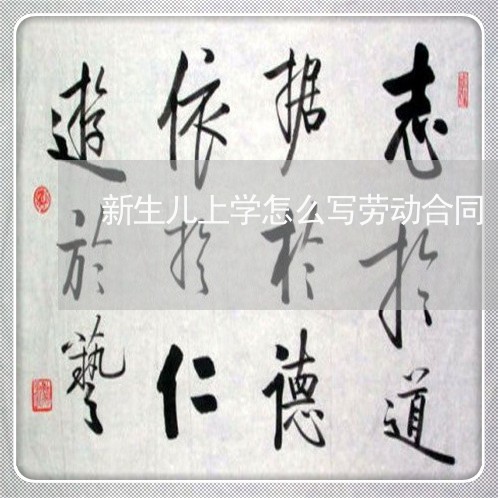 志於道
据於德
依於仁
遊於藝
新生儿上学怎么写劳动合同